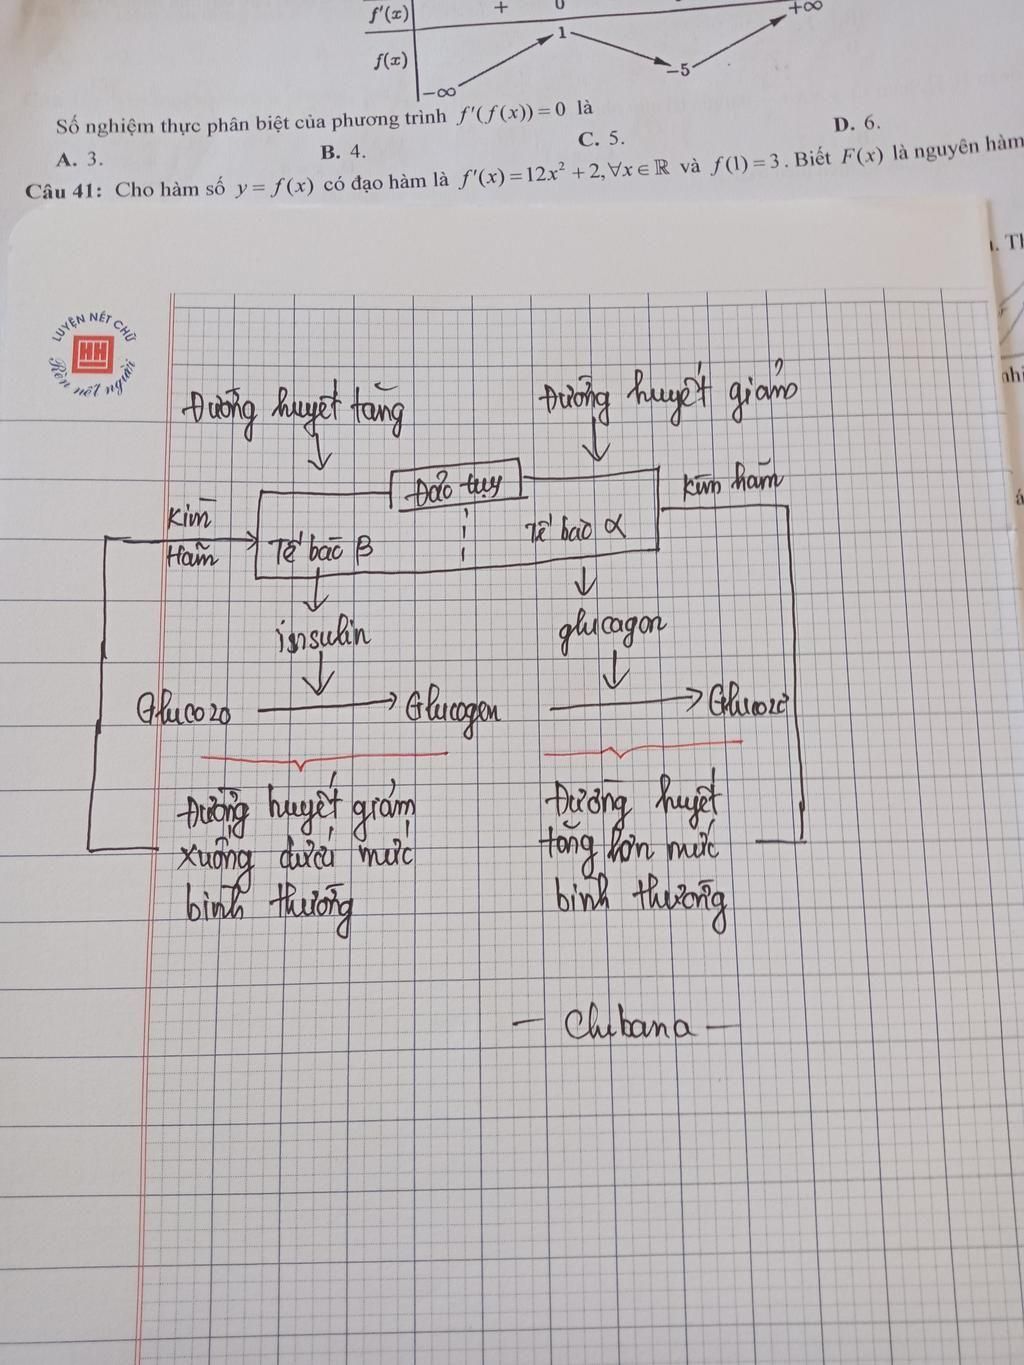 f'(x) + 0
f(x) −∞ 1 −5 +∞
Số nghiệm thực phân biệt của phương trình f'(f(x))=0 là
A. 3. B. 4. C. 5. D. 6.
Câu 41: Cho hàm số y=f(x) có đạo hàm là f'(x)=12x²+2,∀x∈ℝ và f(1)=3. Biết F(x) là nguyên hàm
LUYỆN NÉT CHỮ
HH
Rèn nết người
Đường huyết tăng
Đường huyết giảm
Đảo tụy
Kìm
Hãm
Kìm hãm
Tế bào β
Tế bào α
insulin
glucagon
Glucozo → Glucogen → Glucozo
Đường huyết giảm
xuống dưới mức
bình thường
Đường huyết
tăng hơn mức
bình thường
– Chibana –